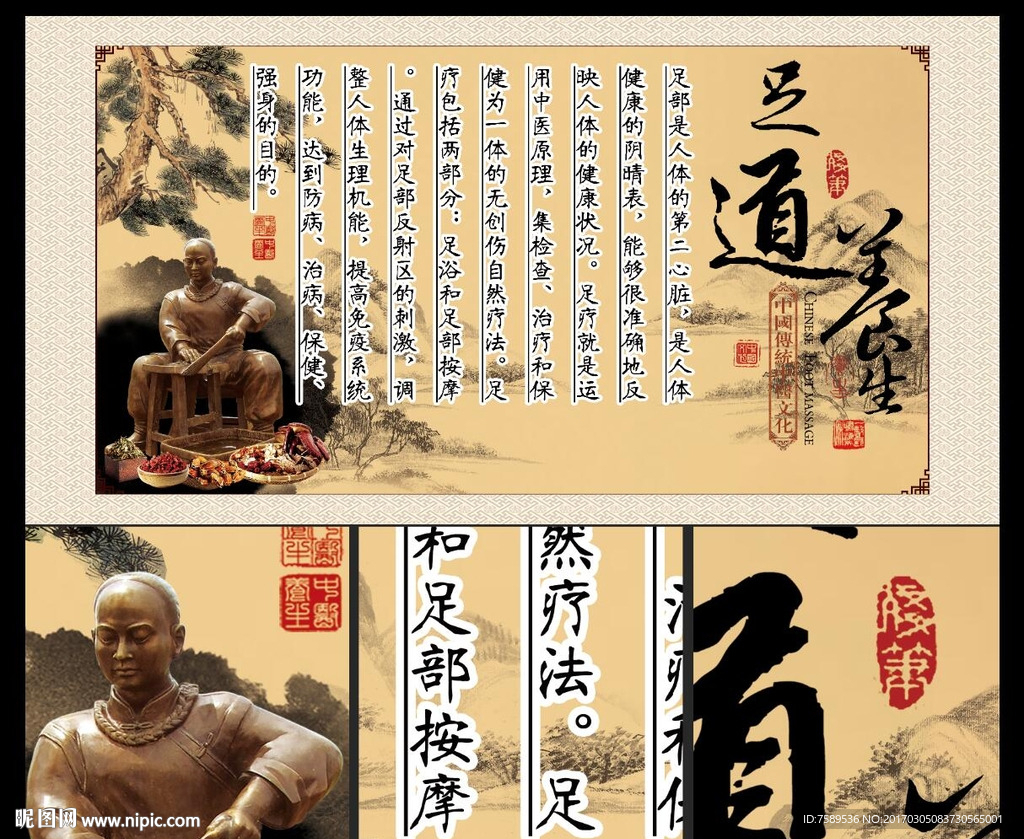 足道養生
中國傳統中醫文化
CHINESE FOOT MASSAGE
足部是人体的第二心脏，是人体
健康的阴晴表，能够很准确地反
映人体的健康状况。足疗就是运
用中医原理，集检查、治疗和保
健为一体的无创伤自然疗法。足
疗包括两部分：足浴和足部按摩
。通过对足部反射区的刺激，调
整人体生理机能，提高免疫系统
功能，达到防病、治病、保健、
强身的目的。
中醫
養生
中醫
養生
然疗法。足
和足部按摩
昵图网 www.nipic.com
ID:7589536 NO:20170305083730565001